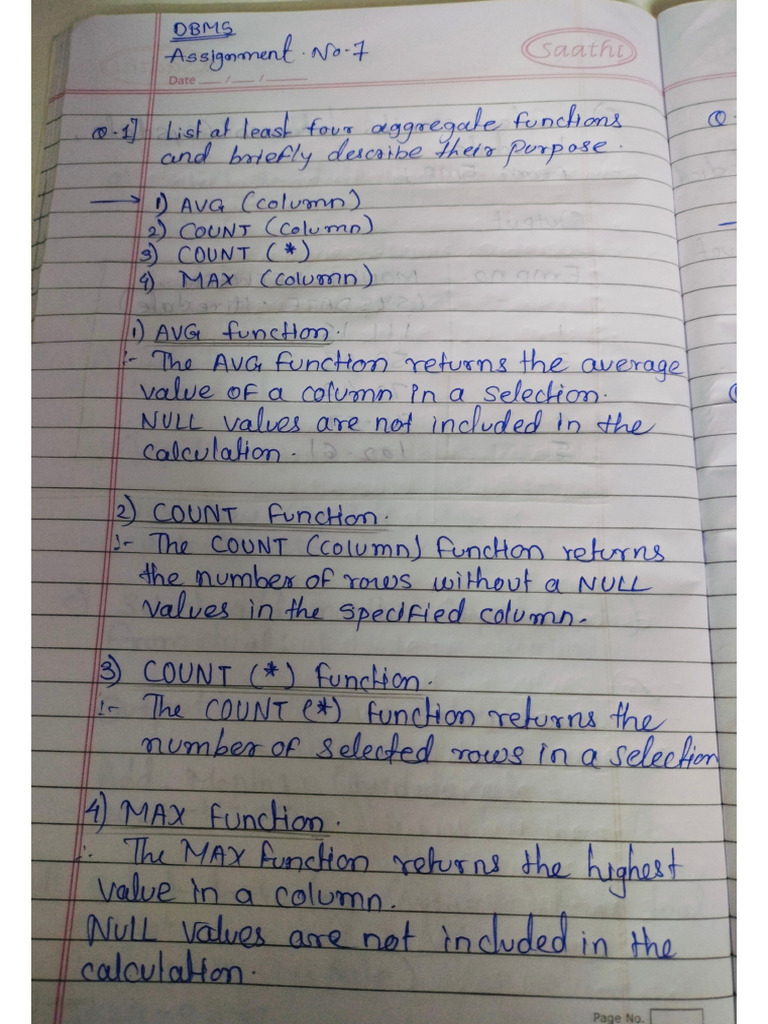 DBMS
Assignment. No-7
Saathi
Date ___/___/___
Q.1] List at least four aggregate functions
and briefly describe their purpose.
→ 1) AVG (column)
2) COUNT (column)
3) COUNT (*)
4) MAX (column)
1) AVG function.
:- The AVG function returns the average
value of a column in a selection.
NULL values are not included in the
calculation.
2) COUNT function.
:- The COUNT (column) function returns
the number of rows without a NULL
values in the specified column.
3) COUNT (*) function.
:- The COUNT (*) function returns the
number of selected rows in a selection
4) MAX function.
:- The MAX function returns the highest
value in a column.
NULL values are not included in the
calculation.
Page No.